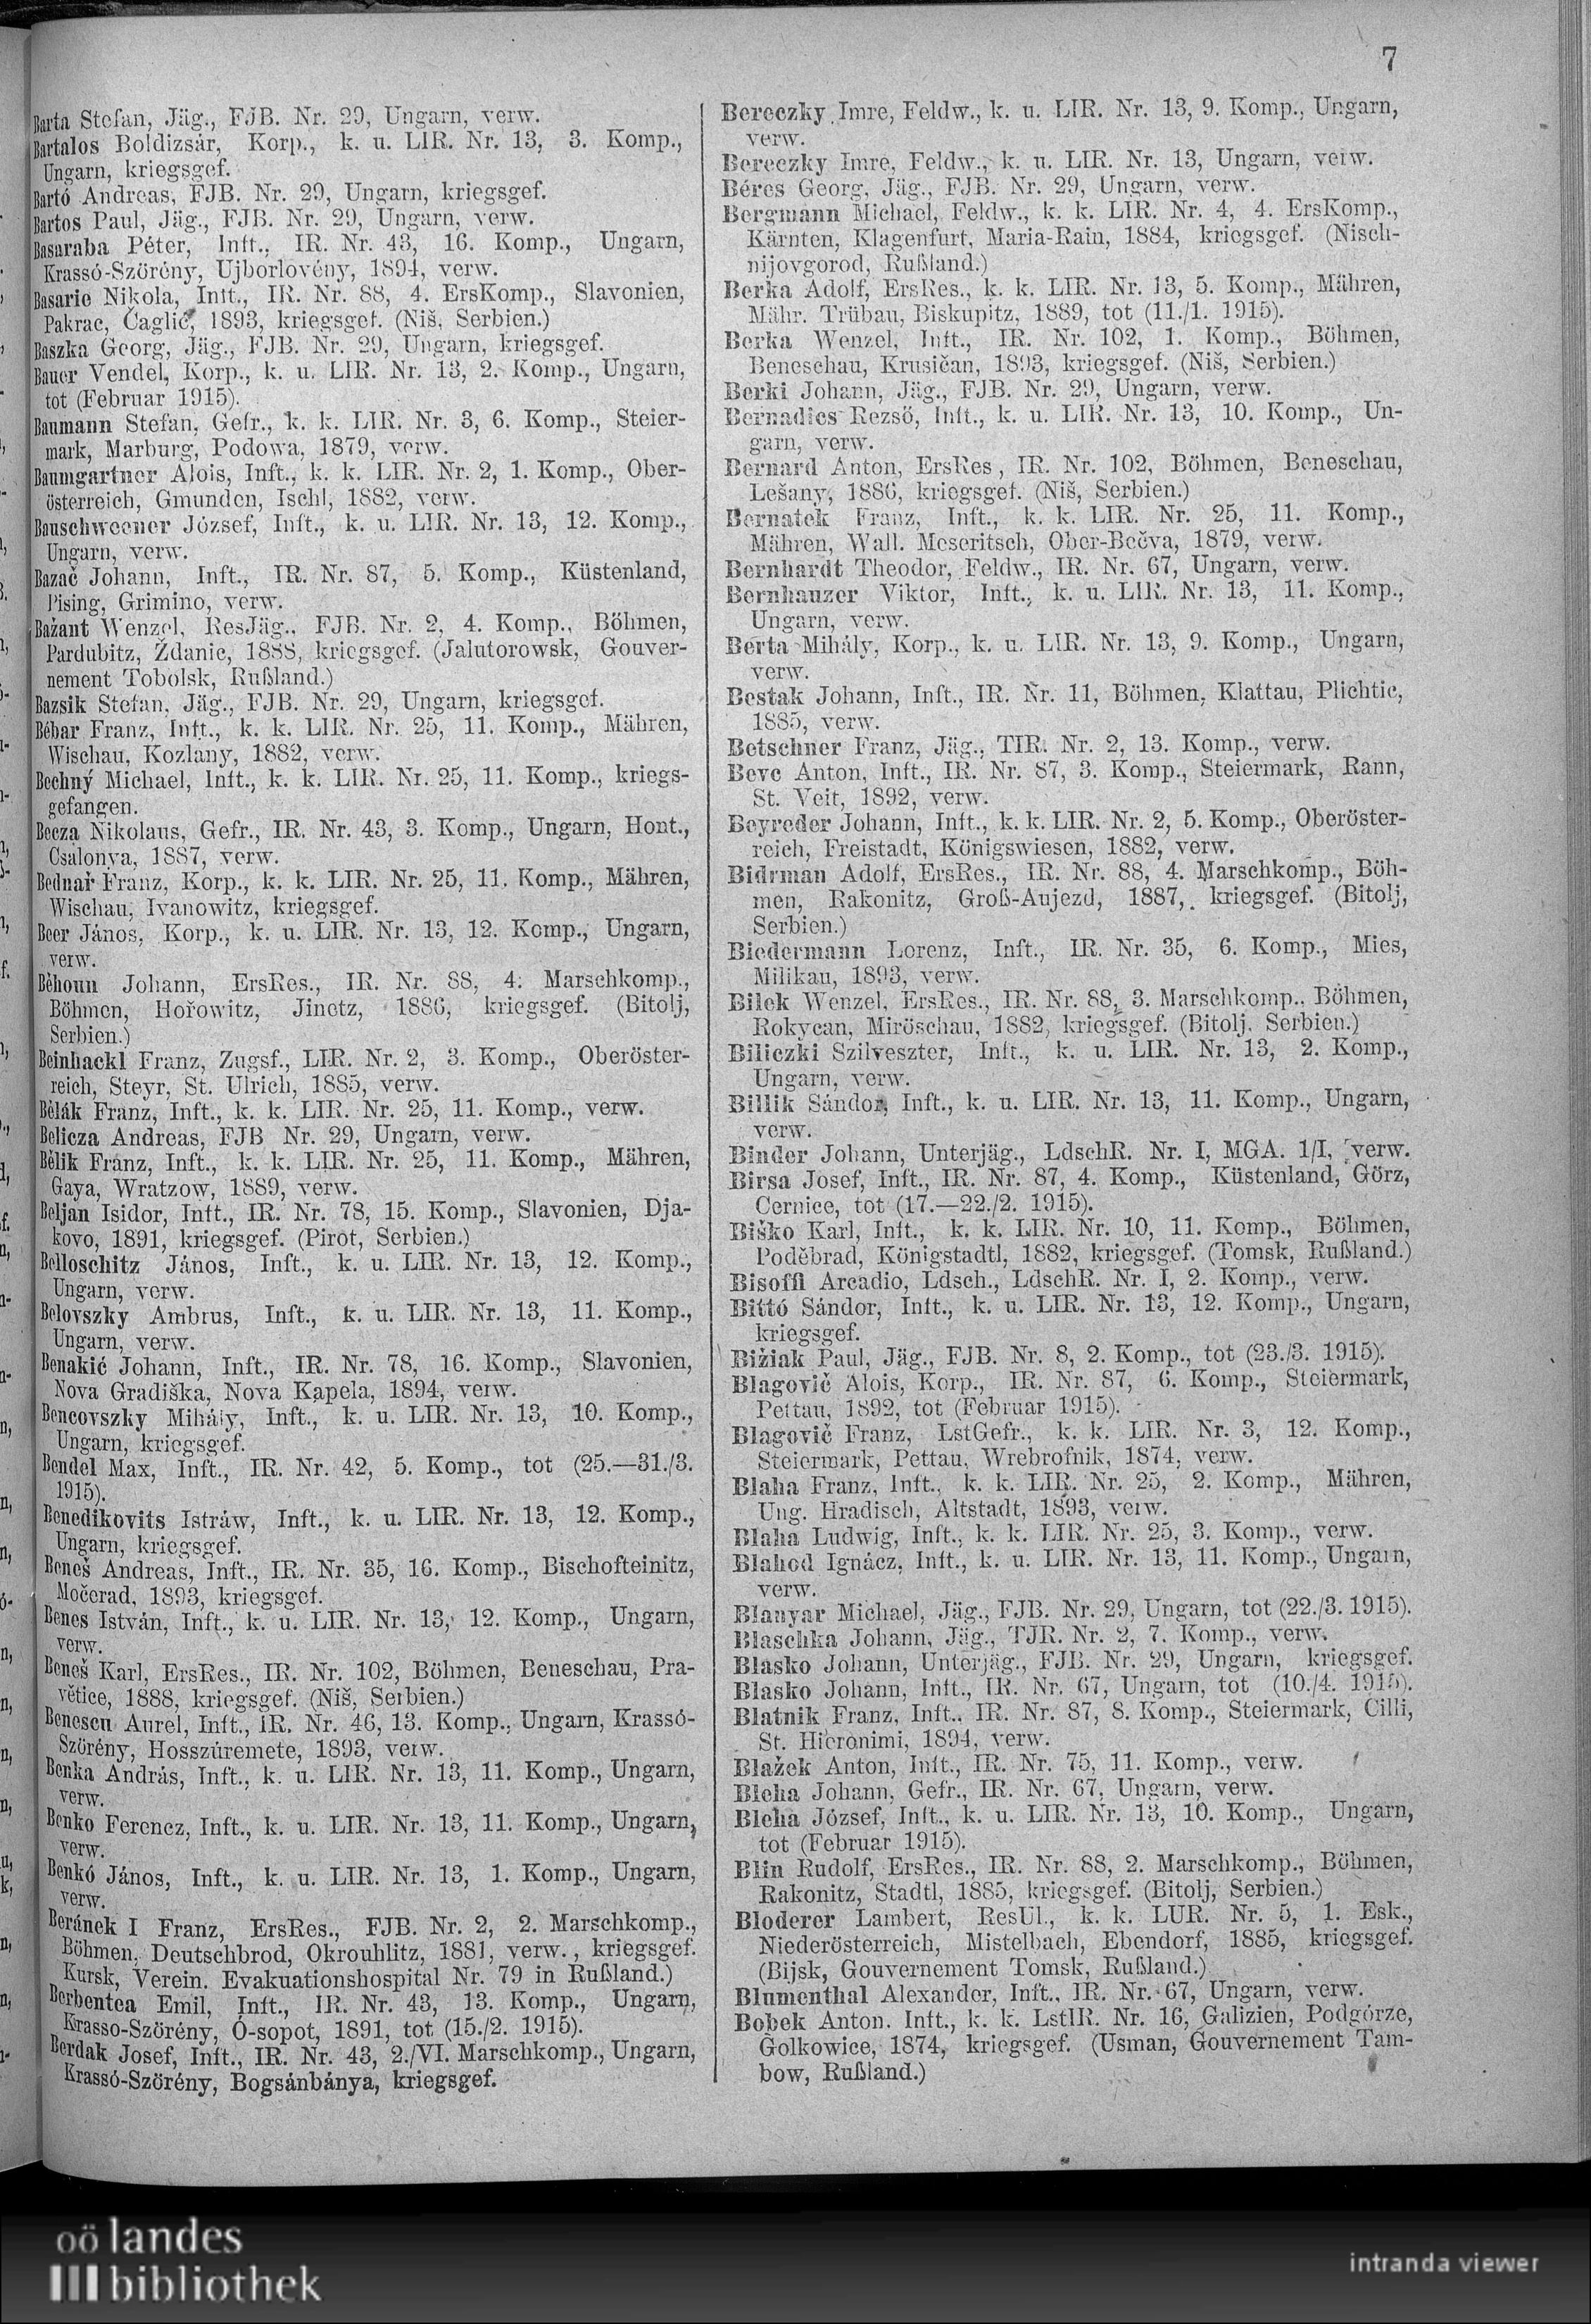 7
Barta Stefan, Jäg., FJB. Nr. 29, Ungarn, verw.
Bartalos Boldizsár, Korp., k. u. LIR. Nr. 13, 3. Komp.,
Ungarn, kriegsgef.
Bartó Andreas, FJB. Nr. 29, Ungarn, kriegsgef.
Bartos Paul, Jäg., FJB. Nr. 29, Ungarn, verw.
Basaraba Péter, Inft., IR. Nr. 43, 16. Komp., Ungarn,
Krassó-Szörény, Ujborlovény, 1894, verw.
Basarie Nikola, Inft., IR. Nr. 88, 4. ErsKomp., Slavonien,
Pakrac, Čaglić, 1893, kriegsgef. (Niš, Serbien.)
Baszka Georg, Jäg., FJB. Nr. 29, Ungarn, kriegsgef.
Bauer Vendel, Korp., k. u. LIR. Nr. 13, 2. Komp., Ungarn,
tot (Februar 1915).
Baumann Stefan, Gefr., k. k. LIR. Nr. 3, 6. Komp., Steier-
mark, Marburg, Podowa, 1879, verw.
Baumgartner Alois, Inft., k. k. LIR. Nr. 2, 1. Komp., Ober-
österreich, Gmunden, Ischl, 1882, verw.
Bauschweener József, Inft., k. u. LIR. Nr. 13, 12. Komp.,
Ungarn, verw.
Bazač Johann, Inft., IR. Nr. 87, 5. Komp., Küstenland,
Pising, Grimino, verw.
Bažant Wenzel, ResJäg., FJB. Nr. 2, 4. Komp., Böhmen,
Pardubitz, Ždanic, 1888, kriegsgef. (Jalutorowsk, Gouver-
nement Tobolsk, Rußland.)
Bazsik Stefan, Jäg., FJB. Nr. 29, Ungarn, kriegsgef.
Bébar Franz, Inft., k. k. LIR. Nr. 25, 11. Komp., Mähren,
Wischau, Kozlany, 1882, verw.
Bechný Michael, Inft., k. k. LIR. Nr. 25, 11. Komp., kriegs-
gefangen.
Becza Nikolaus, Gefr., IR. Nr. 43, 3. Komp., Ungarn, Hont.,
Csalonya, 1887, verw.
Bednař Franz, Korp., k. k. LIR. Nr. 25, 11. Komp., Mähren,
Wischau, Ivanowitz, kriegsgef.
Beer János, Korp., k. u. LIR. Nr. 13, 12. Komp., Ungarn,
verw.
Běhoun Johann, ErsRes., IR. Nr. 88, 4. Marschkomp.,
Böhmen, Hořowitz, Jinetz, 1886, kriegsgef. (Bitolj,
Serbien.)
Beinhackl Franz, Zugsf., LIR. Nr. 2, 3. Komp., Oberöster-
reich, Steyr, St. Ulrich, 1885, verw.
Bělák Franz, Inft., k. k. LIR. Nr. 25, 11. Komp., verw.
Belicza Andreas, FJB Nr. 29, Ungarn, verw.
Bělik Franz, Inft., k. k. LIR. Nr. 25, 11. Komp., Mähren,
Gaya, Wratzow, 1889, verw.
Beljan Isidor, Inft., IR. Nr. 78, 15. Komp., Slavonien, Dja-
kovo, 1891, kriegsgef. (Pirot, Serbien.)
Belloschitz János, Inft., k. u. LIR. Nr. 13, 12. Komp.,
Ungarn, verw.
Belovszky Ambrus, Inft., k. u. LIR. Nr. 13, 11. Komp.,
Ungarn, verw.
Benakić Johann, Inft., IR. Nr. 78, 16. Komp., Slavonien,
Nova Gradiška, Nova Kapela, 1894, verw.
Bencovszky Mihály, Inft., k. u. LIR. Nr. 13, 10. Komp.,
Ungarn, kriegsgef.
Bendel Max, Inft., IR. Nr. 42, 5. Komp., tot (25.—31./3.
1915).
Benedikovits Istráw, Inft., k. u. LIR. Nr. 13, 12. Komp.,
Ungarn, kriegsgef.
Beneš Andreas, Inft., IR. Nr. 35, 16. Komp., Bischofteinitz,
Močerad, 1893, kriegsgef.
Benes István, Inft., k. u. LIR. Nr. 13, 12. Komp., Ungarn,
verw.
Beneš Karl, ErsRes., IR. Nr. 102, Böhmen, Beneschau, Pra-
větice, 1888, kriegsgef. (Niš, Serbien.)
Benescu Aurel, Inft., IR. Nr. 46, 13. Komp., Ungarn, Krassó-
Szörény, Hosszúremete, 1893, verw.
Benka András, Inft., k. u. LIR. Nr. 13, 11. Komp., Ungarn,
verw.
Benko Ferencz, Inft., k. u. LIR. Nr. 13, 11. Komp., Ungarn,
verw.
Benkó János, Inft., k. u. LIR. Nr. 13, 1. Komp., Ungarn,
verw.
Beránek I Franz, ErsRes., FJB. Nr. 2, 2. Marschkomp.,
Böhmen, Deutschbrod, Okrouhlitz, 1881, verw., kriegsgef.
Kursk, Verein. Evakuationshospital Nr. 79 in Rußland.)
Berbentea Emil, Inft., IR. Nr. 43, 13. Komp., Ungarn,
Krasso-Szörény, Ó-sopot, 1891, tot (15./2. 1915).
Berdak Josef, Inft., IR. Nr. 43, 2./VI. Marschkomp., Ungarn,
Krassó-Szörény, Bogsánbánya, kriegsgef.
Bereczky Imre, Feldw., k. u. LIR. Nr. 13, 9. Komp., Ungarn,
verw.
Bereczky Imre, Feldw., k. u. LIR. Nr. 13, Ungarn, verw.
Béres Georg, Jäg., FJB. Nr. 29, Ungarn, verw.
Bergmann Michael, Feldw., k. k. LIR. Nr. 4, 4. ErsKomp.,
Kärnten, Klagenfurt, Maria-Rain, 1884, kriegsgef. (Nisch-
nijovgorod, Rußland.)
Berka Adolf, ErsRes., k. k. LIR. Nr. 13, 5. Komp., Mähren,
Mähr. Trübau, Biskupitz, 1889, tot (11./1. 1915).
Berka Wenzel, Inft., IR. Nr. 102, 1. Komp., Böhmen,
Beneschau, Krusičan, 1893, kriegsgef. (Niš, Serbien.)
Berki Johann, Jäg., FJB. Nr. 29, Ungarn, verw.
Bernadics Rezsö, Inft., k. u. LIR. Nr. 13, 10. Komp., Un-
garn, verw.
Bernard Anton, ErsRes, IR. Nr. 102, Böhmen, Beneschau,
Lešany, 1886, kriegsgef. (Niš, Serbien.)
Bernatek Franz, Inft., k. k. LIR. Nr. 25, 11. Komp.,
Mähren, Wall. Meseritsch, Ober-Bečva, 1879, verw.
Bernhardt Theodor, Feldw., IR. Nr. 67, Ungarn, verw.
Bernhauzer Viktor, Inft., k. u. LIR. Nr. 13, 11. Komp.,
Ungarn, verw.
Berta Mihály, Korp., k. u. LIR. Nr. 13, 9. Komp., Ungarn,
verw.
Bestak Johann, Inft., IR. Nr. 11, Böhmen, Klattau, Plichtic,
1885, verw.
Betschner Franz, Jäg., TIR. Nr. 2, 13. Komp., verw.
Bevc Anton, Inft., IR. Nr. 87, 3. Komp., Steiermark, Rann,
St. Veit, 1892, verw.
Beyreder Johann, Inft., k. k. LIR. Nr. 2, 5. Komp., Oberöster-
reich, Freistadt, Königswiesen, 1882, verw.
Bidrman Adolf, ErsRes., IR. Nr. 88, 4. Marschkomp., Böh-
men, Rakonitz, Groß-Aujezd, 1887, kriegsgef. (Bitolj,
Serbien.)
Biedermann Lorenz, Inft., IR. Nr. 35, 6. Komp., Mies,
Milikau, 1893, verw.
Bilek Wenzel, ErsRes., IR. Nr. 88, 3. Marschkomp., Böhmen,
Rokycan, Miröschau, 1882, kriegsgef. (Bitolj, Serbien.)
Biliczki Szilveszter, Inft., k. u. LIR. Nr. 13, 2. Komp.,
Ungarn, verw.
Billik Sándor, Inft., k. u. LIR. Nr. 13, 11. Komp., Ungarn,
verw.
Binder Johann, Unterjäg., LdschR. Nr. I, MGA. 1/I, verw.
Birsa Josef, Inft., IR. Nr. 87, 4. Komp., Küstenland, Görz,
Cernice, tot (17.—22./2. 1915).
Biško Karl, Inft., k. k. LIR. Nr. 10, 11. Komp., Böhmen,
Poděbrad, Königstadtl, 1882, kriegsgef. (Tomsk, Rußland.)
Bisoffl Arcadio, Ldsch., LdschR. Nr. I, 2. Komp., verw.
Bittó Sándor, Inft., k. u. LIR. Nr. 13, 12. Komp., Ungarn,
kriegsgef.
Bižiak Paul, Jäg., FJB. Nr. 8, 2. Komp., tot (23./3. 1915).
Blagovič Alois, Korp., IR. Nr. 87, 6. Komp., Steiermark,
Pettau, 1892, tot (Februar 1915).
Blagovič Franz, LstGefr., k. k. LIR. Nr. 3, 12. Komp.,
Steiermark, Pettau, Wrebrofnik, 1874, verw.
Blaha Franz, Inft., k. k. LIR. Nr. 25, 2. Komp., Mähren,
Ung. Hradisch, Altstadt, 1893, verw.
Blaha Ludwig, Inft., k. k. LIR. Nr. 25, 3. Komp., verw.
Blahod Ignácz, Inft., k. u. LIR. Nr. 13, 11. Komp., Ungarn,
verw.
Blanyar Michael, Jäg., FJB. Nr. 29, Ungarn, tot (22./3. 1915).
Blaschka Johann, Jäg., TJR. Nr. 2, 7. Komp., verw.
Blasko Johann, Unterjäg., FJB. Nr. 29, Ungarn, kriegsgef.
Blasko Johann, Inft., IR. Nr. 67, Ungarn, tot (10./4. 1915).
Blatnik Franz, Inft., IR. Nr. 87, 8. Komp., Steiermark, Cilli,
St. Hieronimi, 1894, verw.
Blažek Anton, Inft., IR. Nr. 75, 11. Komp., verw.
Bleha Johann, Gefr., IR. Nr. 67, Ungarn, verw.
Bleha József, Inft., k. u. LIR. Nr. 13, 10. Komp., Ungarn,
tot (Februar 1915).
Blin Rudolf, ErsRes., IR. Nr. 88, 2. Marschkomp., Böhmen,
Rakonitz, Stadtl, 1885, kriegsgef. (Bitolj, Serbien.)
Bloderer Lambert, ResUl., k. k. LUR. Nr. 5, 1. Esk.,
Niederösterreich, Mistelbach, Ebendorf, 1885, kriegsgef.
(Bijsk, Gouvernement Tomsk, Rußland.)
Blumenthal Alexander, Inft., IR. Nr. 67, Ungarn, verw.
Bobek Anton, Inft., k. k. LstIR. Nr. 16, Galizien, Podgórze,
Golkowice, 1874, kriegsgef. (Usman, Gouvernement Tam-
bow, Rußland.)
oö landes
bibliothek
intranda viewer